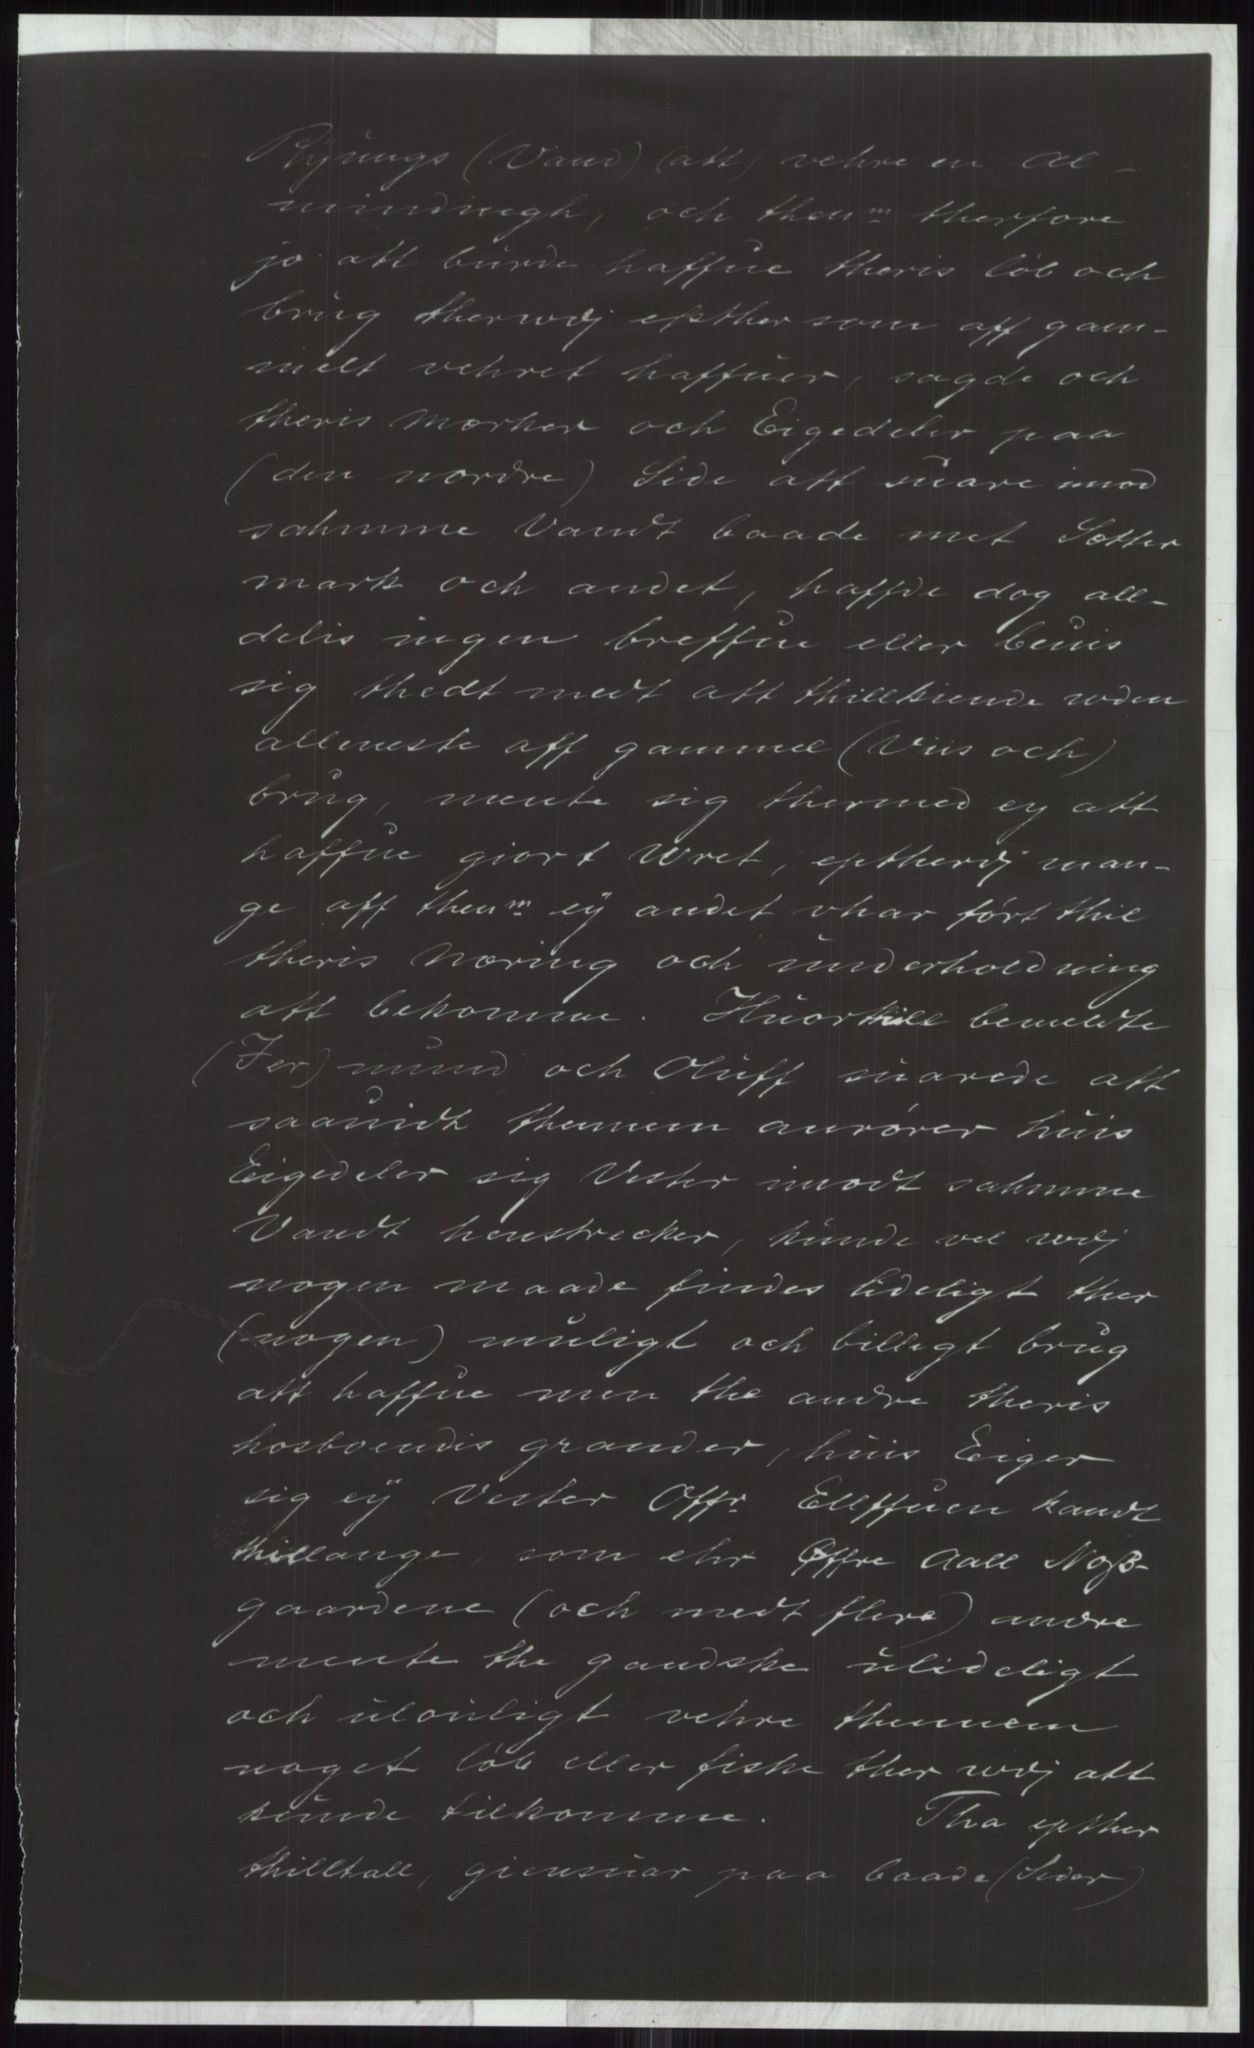 Rÿungs (Vand) (att) vehre en Al-
mindingh, och then<sup>m</sup> therfore
jo att burde haffůe theris løb och
brůg therwdj epther som aff gam-
melt vehret haffůer, sagde och
theris Marker och Eigedeler paa
(den nordre) Side att sůare imod
sahmme Vandt baade met Sætter
mark och andet, haffde dog all-
delis ingen breffůe eller beůis
sig thedt medt att thillkiende uden
alleneste aff gammel (Viis och)
brůg, mente sig thermed ey att
haffůe giort Wret, eptherdj man-
ge aff then<sup>m</sup> eÿ andet vhar ført thil
theris Næring och ůnderholdning
att bekomme. Hůorthill bemeldte
(Fer) můnd) och Olůff sůarede att
saaůidt themmem anrører hůis
Eigedeler sig Vester imodt sahmme
Vandt henstrecker, kůnde vel wdj
nogen maade findes lideligt ther
(nogen) můligt och billigt brůg
att haffůe men the andre theris
hosboendis grander, hůis Eiger
sig eÿ Vester Offr Ellffůen kandt
thillange, som ehr Øffre Aall Noß-
gaardene (och medt flere) andre
mente the gandske ůlideligt
och ůloůligt vehre themmem
noget løb eller fiske ther wdj att
kůnde tilkomme. Tha epther
thilltall, giensůar paa baade (Sider)